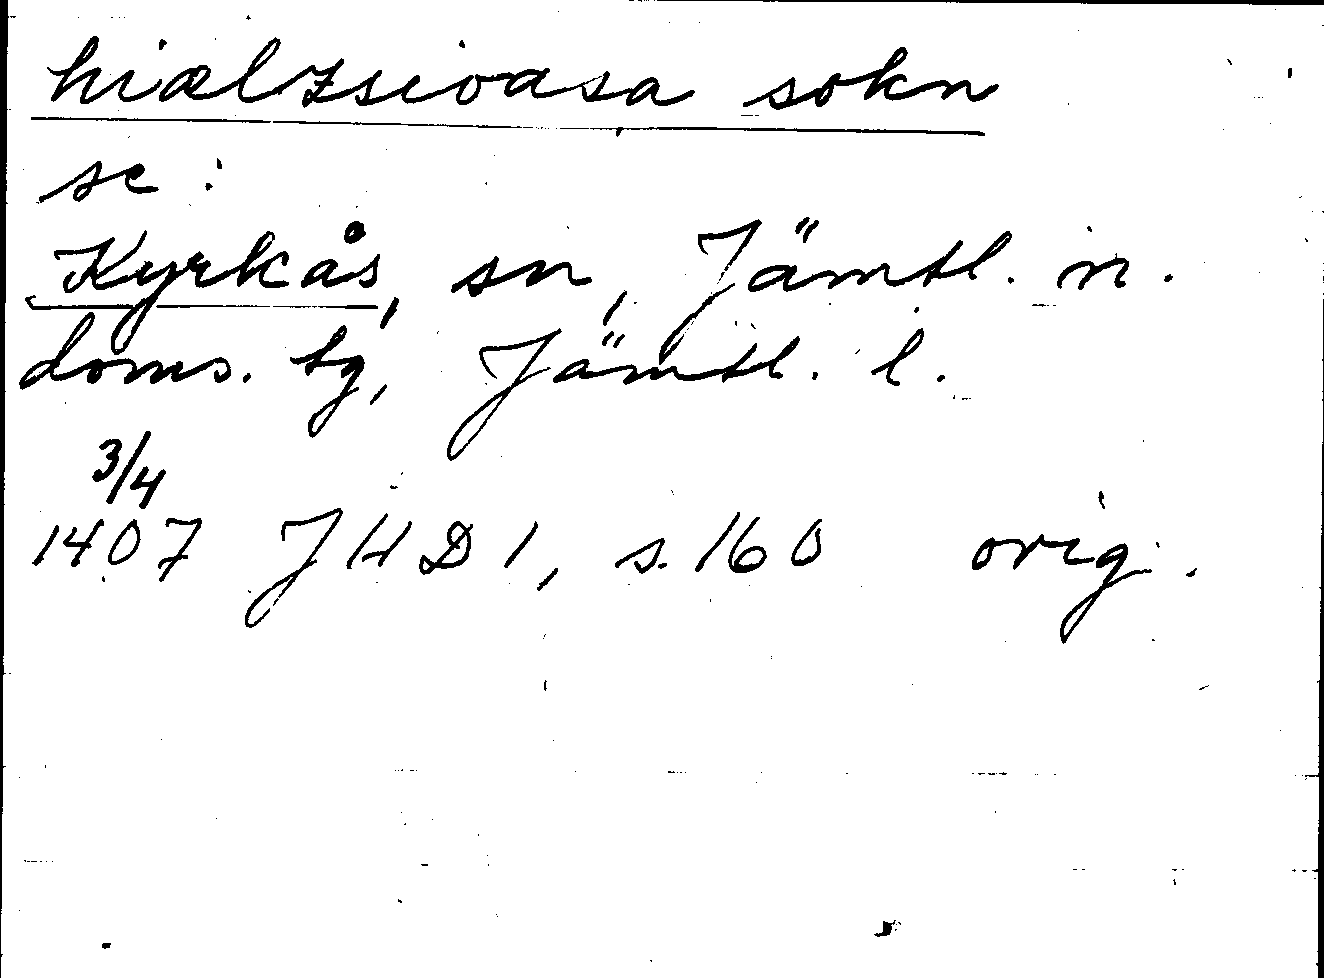 hiælzsioasa sokn
se:
Kyrkås, sn, Jämtl. n.
doms. tg, Jämtl. l.
3/4
1407 JHD 1, s. 160 orig.